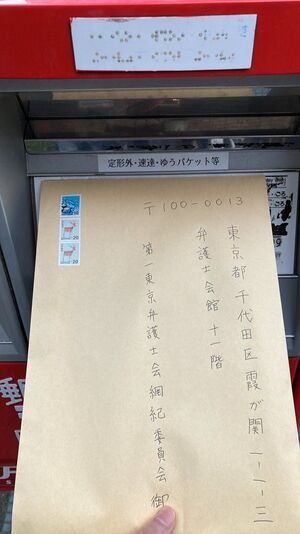 定形外・速達・ゆうパケット等
〒100-0013
東京都千代田区霞が関一-一-三
弁護士会館 十一階
第一東京弁護士会綱紀委員会御
20
20